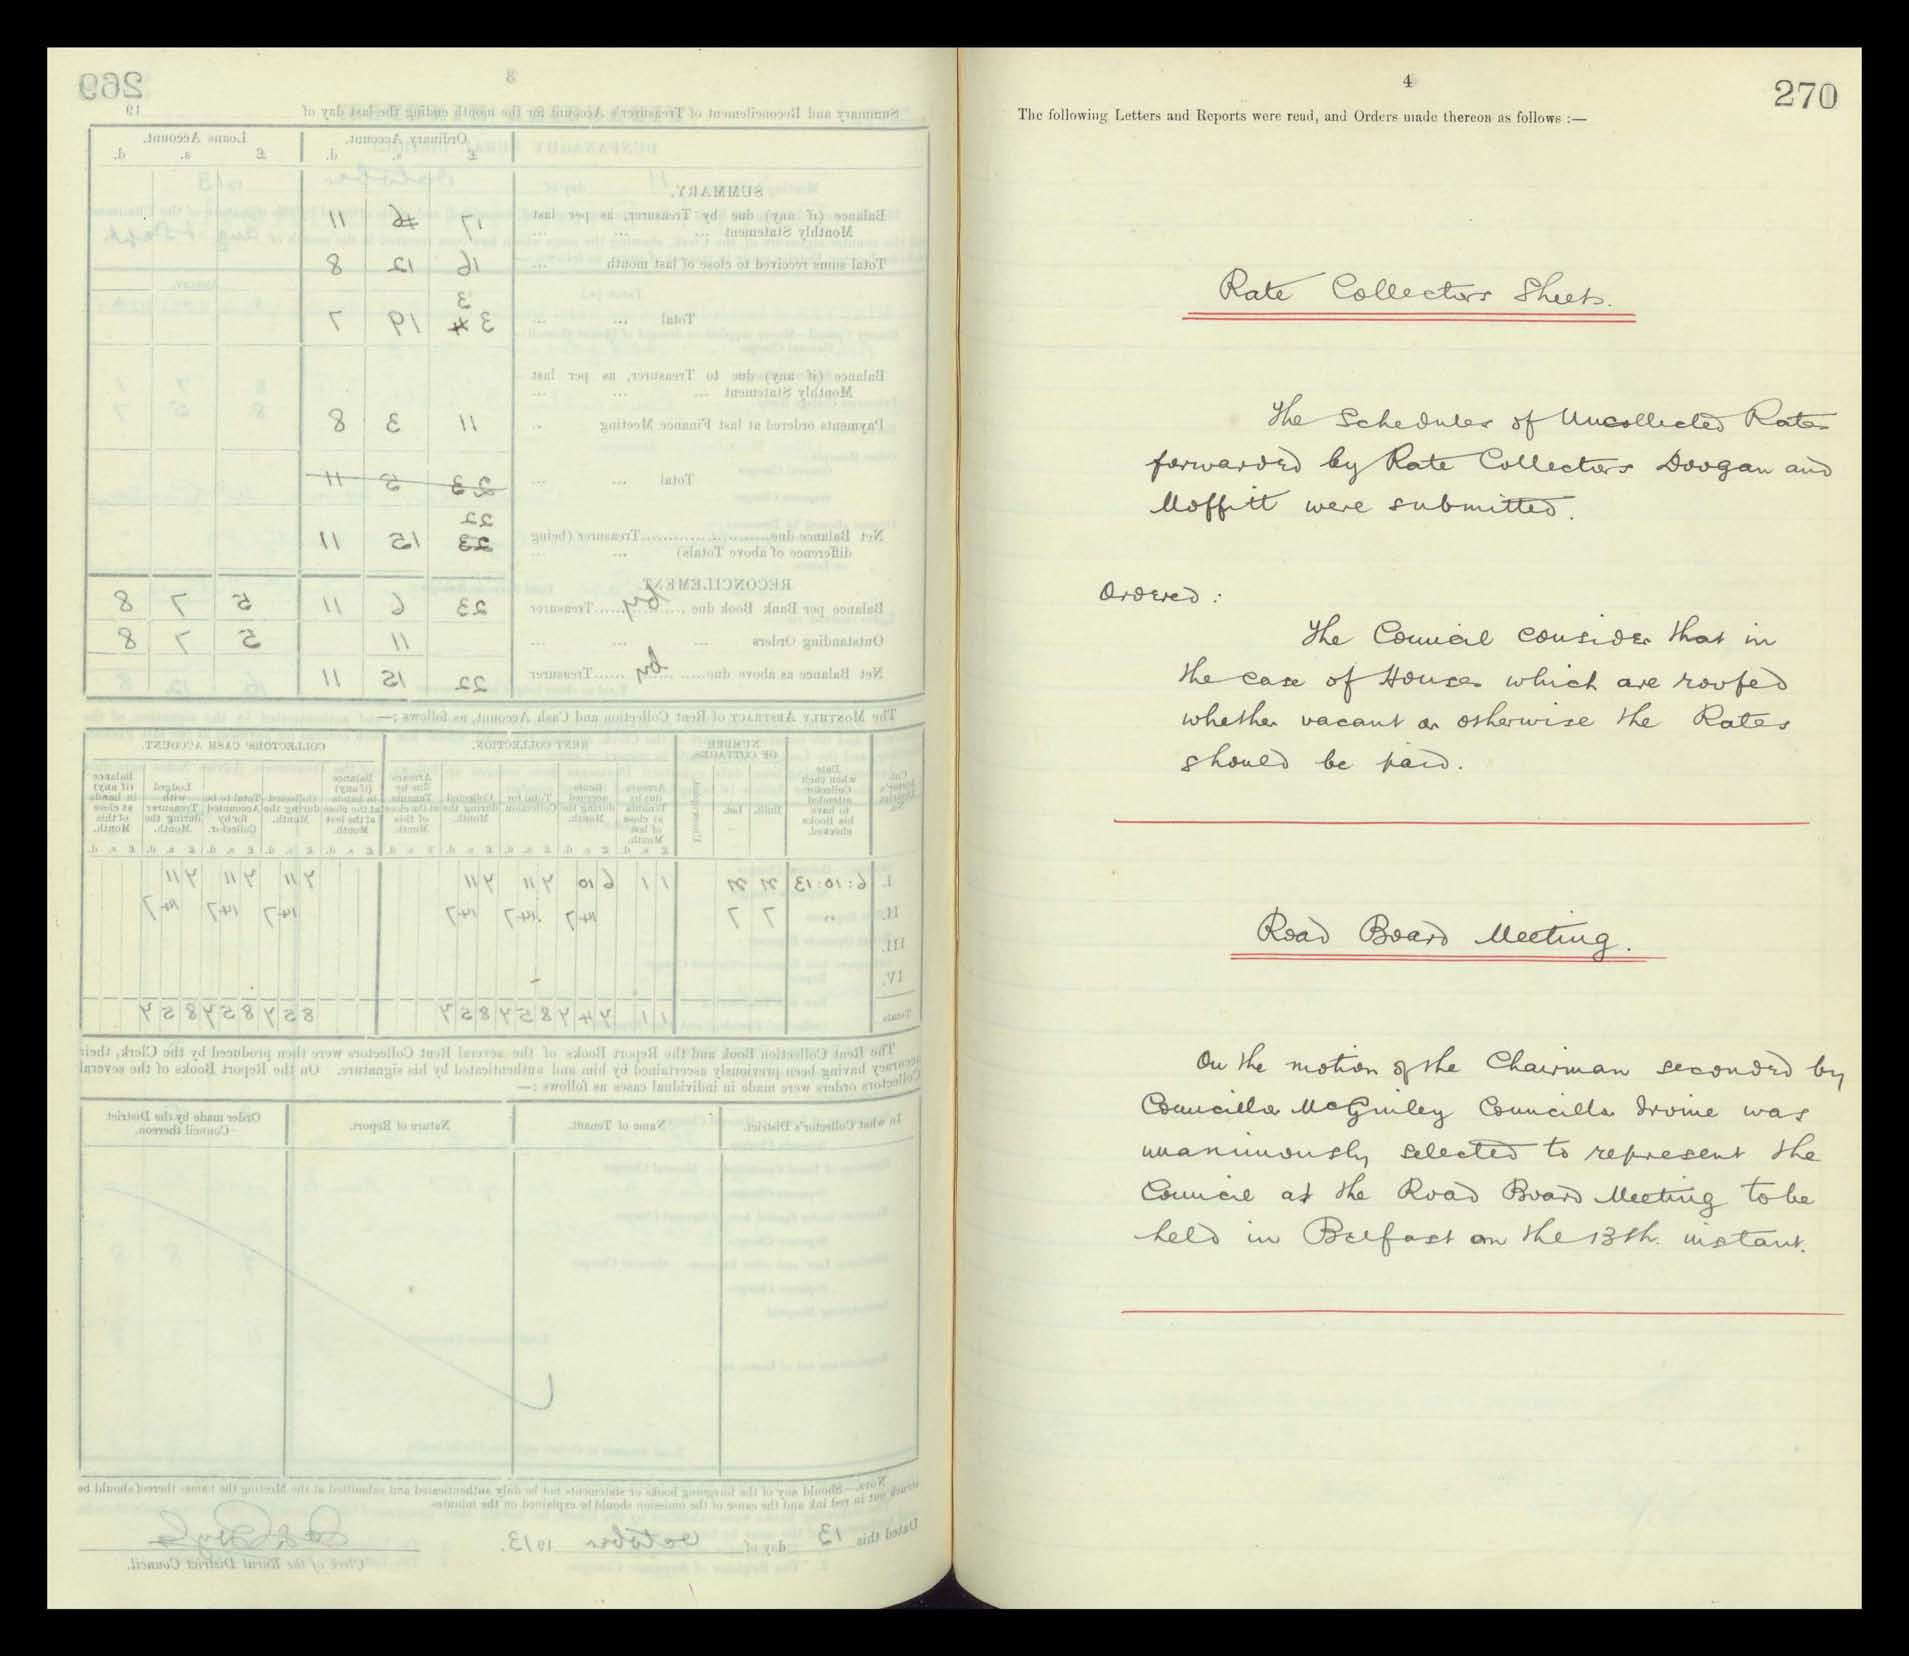 269
3
Summary and Reconcilement of Treasurer's Account for the month ending the last day of 19
Ordinary Account. Loans Account.
£ s. d. £ s. d.
SUMMARY.
Balance (if any) due by Treasurer, as per last
Monthly Statement ... 17 6 11
Total sums received to close of last month ... 16 12 8
3
Total ... 34 19 7
Balance (if any) due to Treasurer, as per last
Monthly Statement ...
Payments ordered at last Finance Meeting .. 11 3 8
Total ... 23 5 11
22
Net Balance due Treasurer (being 23 15 11
difference of above Totals)
RECONCILEMENT.
Balance per Bank Book due by Treasurer 23 6 11 5 7 8
Outstanding Orders ... 11 5 7 8
Net Balance as above due by Treasurer 22 15 11
The MONTHLY ABSTRACT of Rent Collection and Cash Account, as follows :—
NUMBER OF COTTAGES. RENT COLLECTION. COLLECTORS' CASH ACCOUNT.
I. 6:10:13 21 21 1 1 6 10 7 11 7 11 7 11 7 11 7 11
II. " 7 7 14 7 14 7 14 7 14 7 14 7 14 7
III.
IV.
Totals 1 1 7 4 7 8 5 7 8 5 7 8 5 7 8 5 7 8 5 7
The Rent Collection Book and the Report Books of the several Rent Collectors were then produced by the Clerk, their
accuracy having been previously ascertained by him and authenticated by his signature. On the Report Books of the several
Collectors orders were made in individual cases as follows :—
In what Collector's District. Name of Tenant. Nature of Report. Order made by the District
Council thereon.
NOTE.—Should any of the foregoing books or statements not be duly authenticated and submitted at the Meeting the names thereof should be
struck out in red ink and the cause of the omission should be explained on the minutes.
Dated this 13 day of October 1913.
Clerk of the Rural District Council.
4
270
The following Letters and Reports were read, and Orders made thereon as follows :—
Rate Collectors Sheets.
The Schedules of Uncollected Rates
forwarded by Rate Collectors Doogan and
Moffitt were submitted.
Ordered :
The Council consider that in
the case of Houses which are roofed
whether vacant or otherwise the Rates
should be paid.
Road Board Meeting.
On the motion of the Chairman seconded by
Councillor McGinley Councillor Irvine was
unanimously selected to represent the
Council at the Road Board Meeting to be
held in Belfast on the 13th. instant.